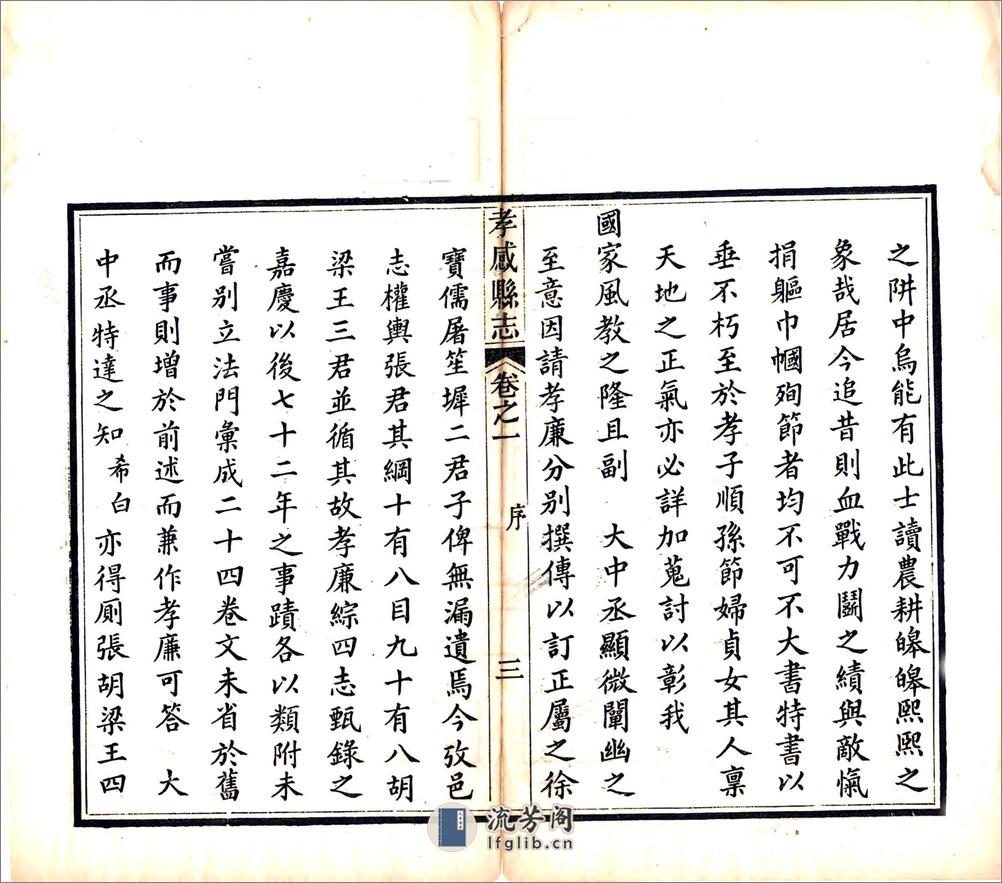 之阱中烏能有此士讀農耕皞皞熙熙之
象哉居今追昔則血戰力鬭之績與敵愾
捐軀巾幗殉節者均不可不大書特書以
垂不朽至於孝子順孫節婦貞女其人稟
天地之正氣亦必詳加蒐討以彰我
國家風教之隆且副 大中丞顯微闡幽之
至意因請孝廉分別撰傳以訂正屬之徐
孝感縣志 卷之一 序 三
寶儒屠笙墀二君子俾無漏遺焉今攷邑
志權輿張君其綱十有八目九十有八胡
梁王三君並循其故孝廉綜四志甄錄之
嘉慶以後七十二年之事蹟各以類附未
嘗別立法門彙成二十四卷文未省於舊
而事則增於前述而兼作孝廉可答 大
中丞特達之知希白亦得厠張胡梁王四
流芳阁
lfglib.cn